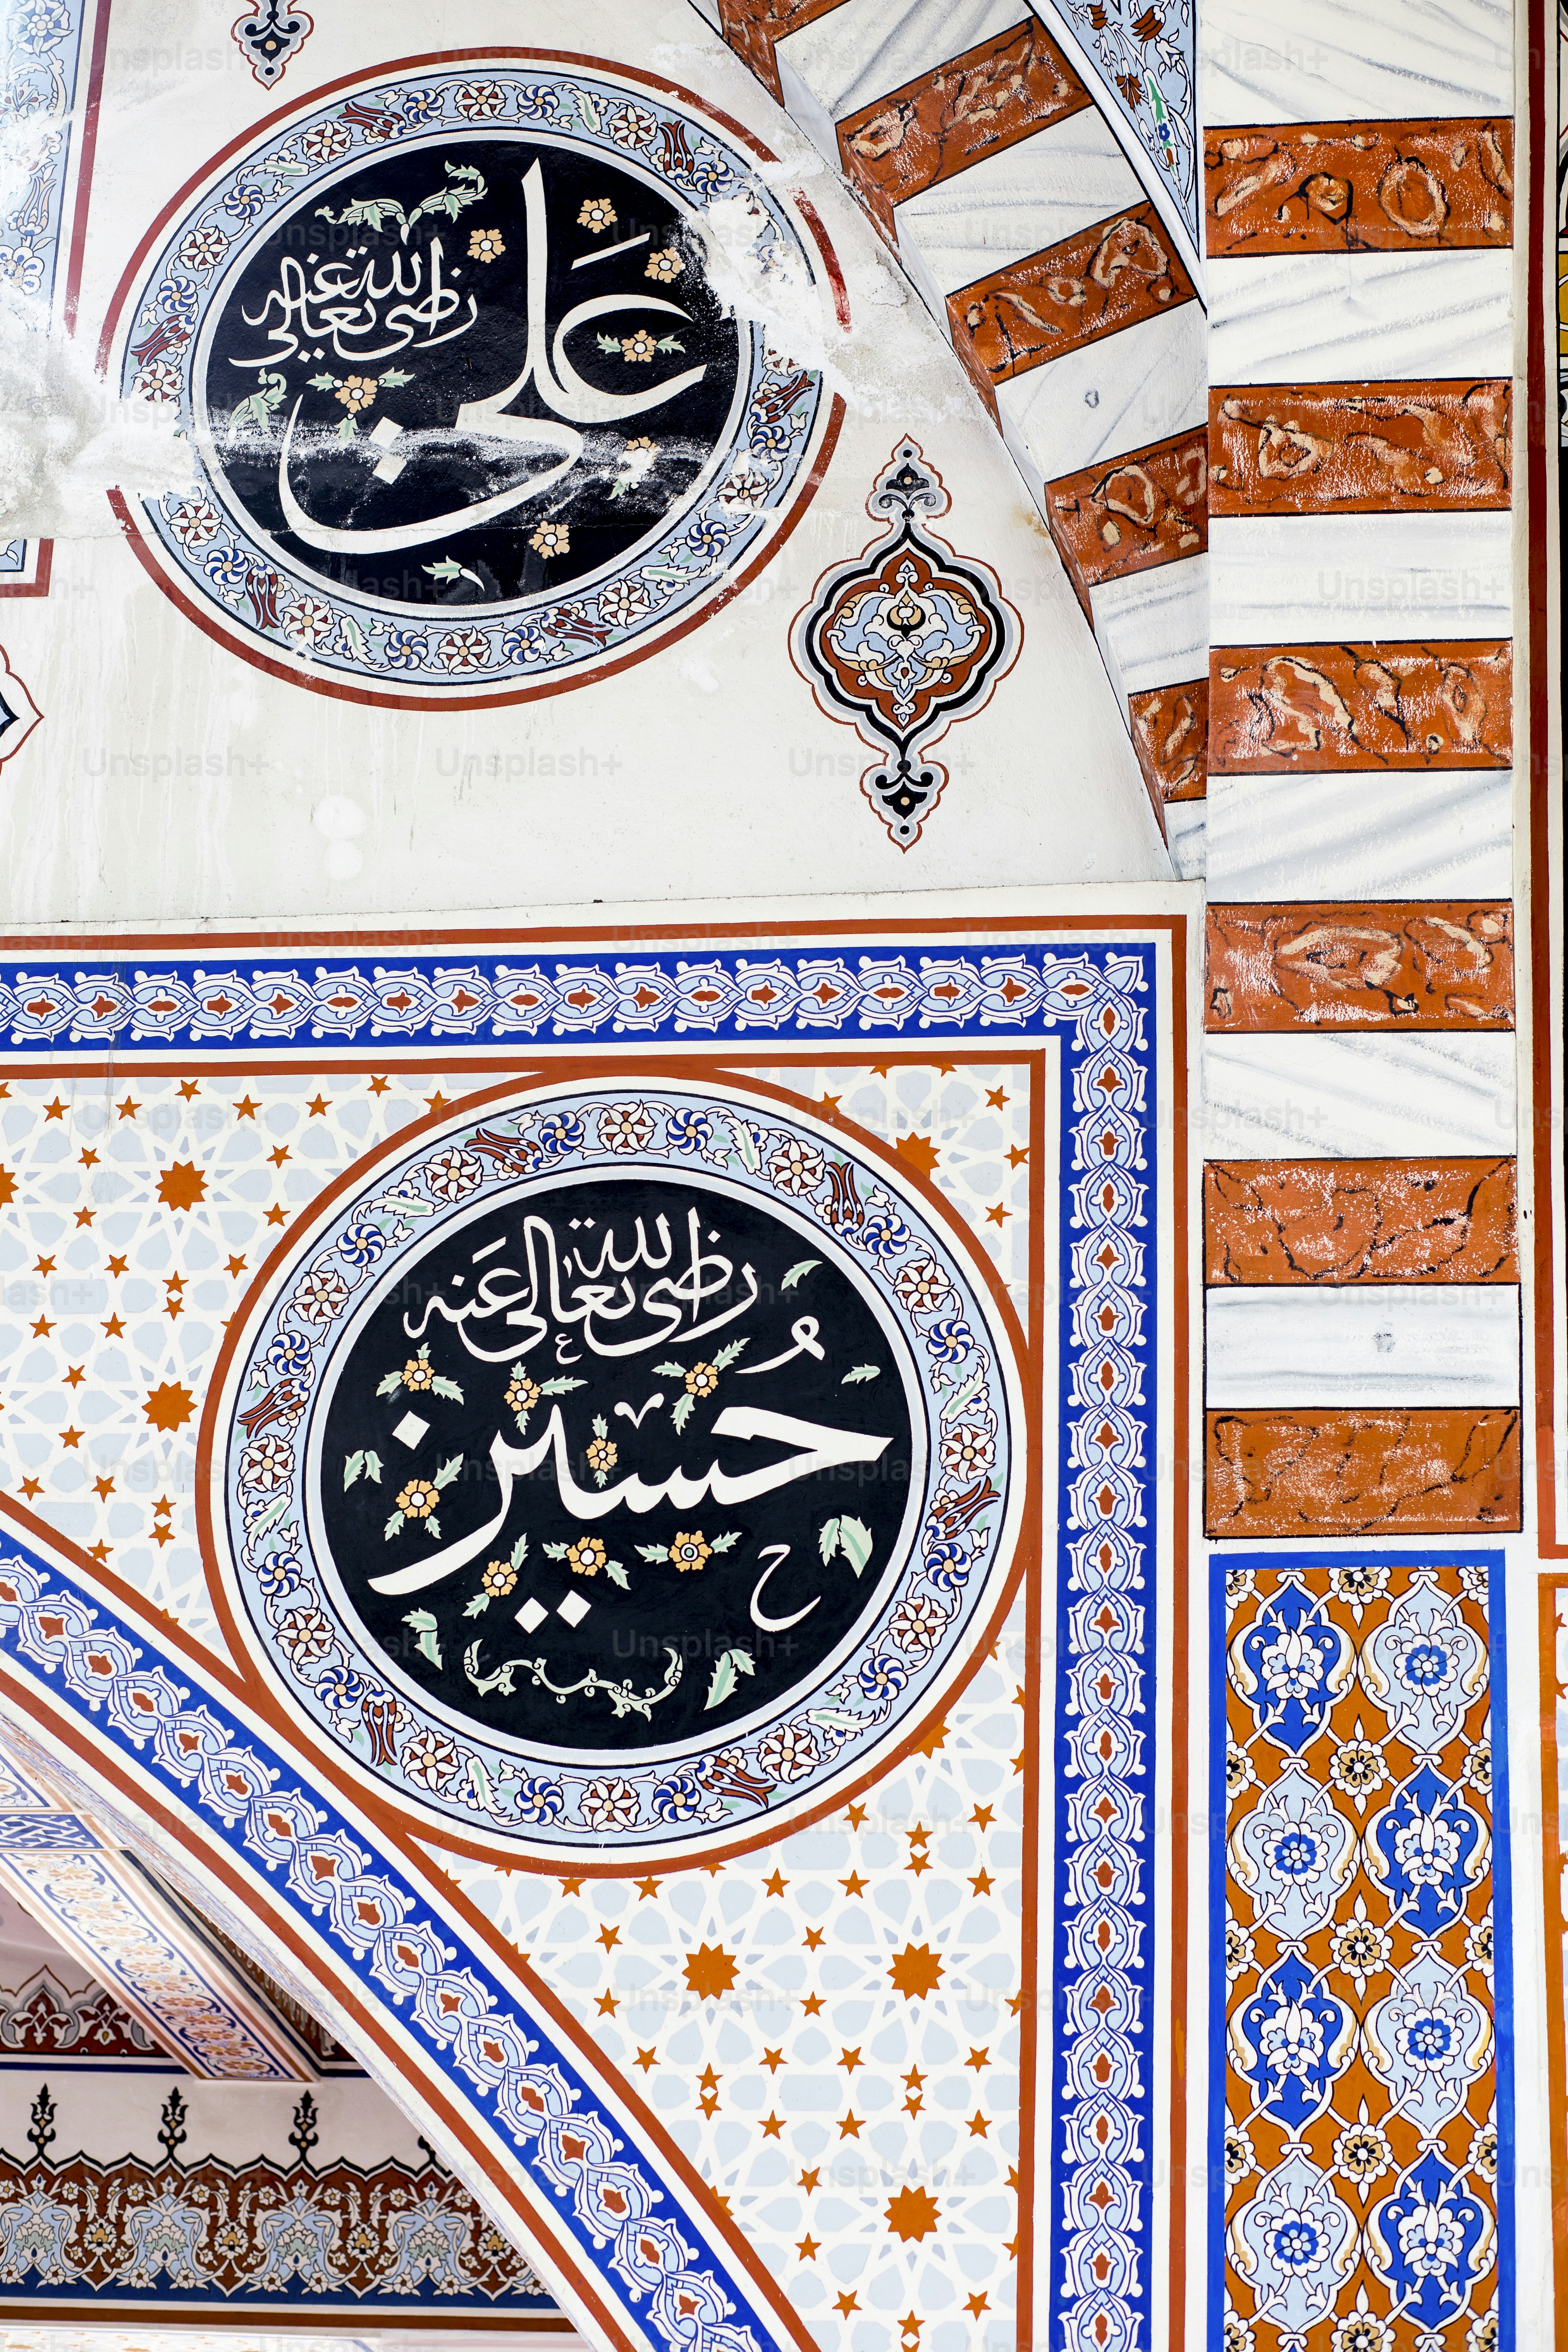 علي
رضى الله تعالى عنه
رضى الله تعالى عنه
حُسين
Unsplash+